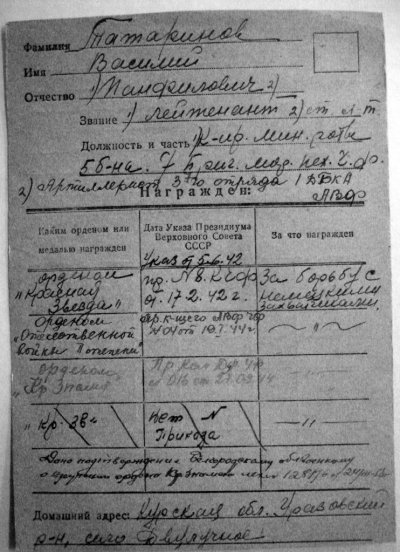 Фамилия Татаринов
Имя Василий
Отчество 1) Панфилович 2)
Звание 1) лейтенант 2) ст. л-т
Должность и часть 1) К-ир. мин. роты
5 б-на. 7 бриг. мор. пех. Ч. ф.
2) Артиллерист 3го отряда 1 ДБКА
Награжден:
Каким орденом или
медалью награжден
Дата Указа Президиума
Верховного Совета
СССР
За что награжден
Указ от 5.6.42
орденом
"Красная
Звезда"
пр. №8. КЧФ
от. 17.2.42 г.
За борьбу с
немецкими
захватчиками.
Орденом
"Отечественной
войны II степени"
Пр. К-щего ЧФ
№ 04 от
— " —
орденом
"Кр Знамя"
Пр Ком ЧФ
"Кр. Зв"
нет №
Приказа
— " —
Дано подтверждение Белгородскому обл. военкому
о вручении ордена Кр Знамени
Домашний адрес: Курская обл. Уразовский
р-н, село Двулучное